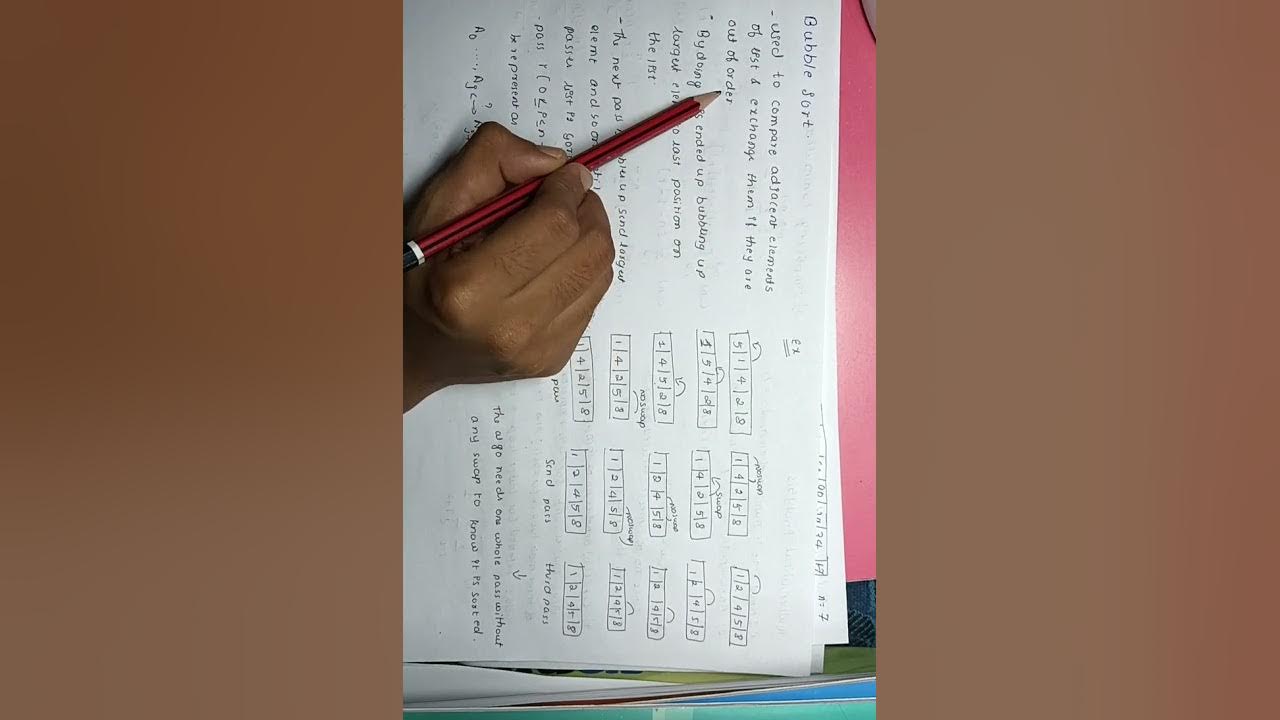 Bubble Sort.
- used to compare adjacent elements
of list & exchange them if they are
out of order
- By doing ended up bubbling up
largest to last position on
the list
- The next pass up scnd largest
elemt and so on
passes list is
- pass
be represent as
A0 ....,
ex
5|1|4|2|8
1|5|4|2|8
1|4|5|2|8
1|4|2|5|8
no swap
1|4|2|5|8
pass
1|4|2|5|8
noswap
1|4|2|5|8
swap
1|2|4|5|8
noswap
1|2|4|5|8
noswap
1|2|4|5|8
scnd pass
1|2|4|5|8
1|2|4|5|8
1|2|4|5|8
1|2|4|5|8
1|2|4|5|8
third pass
The algo needs one whole pass without
any swap to know it is sorted.
n=7